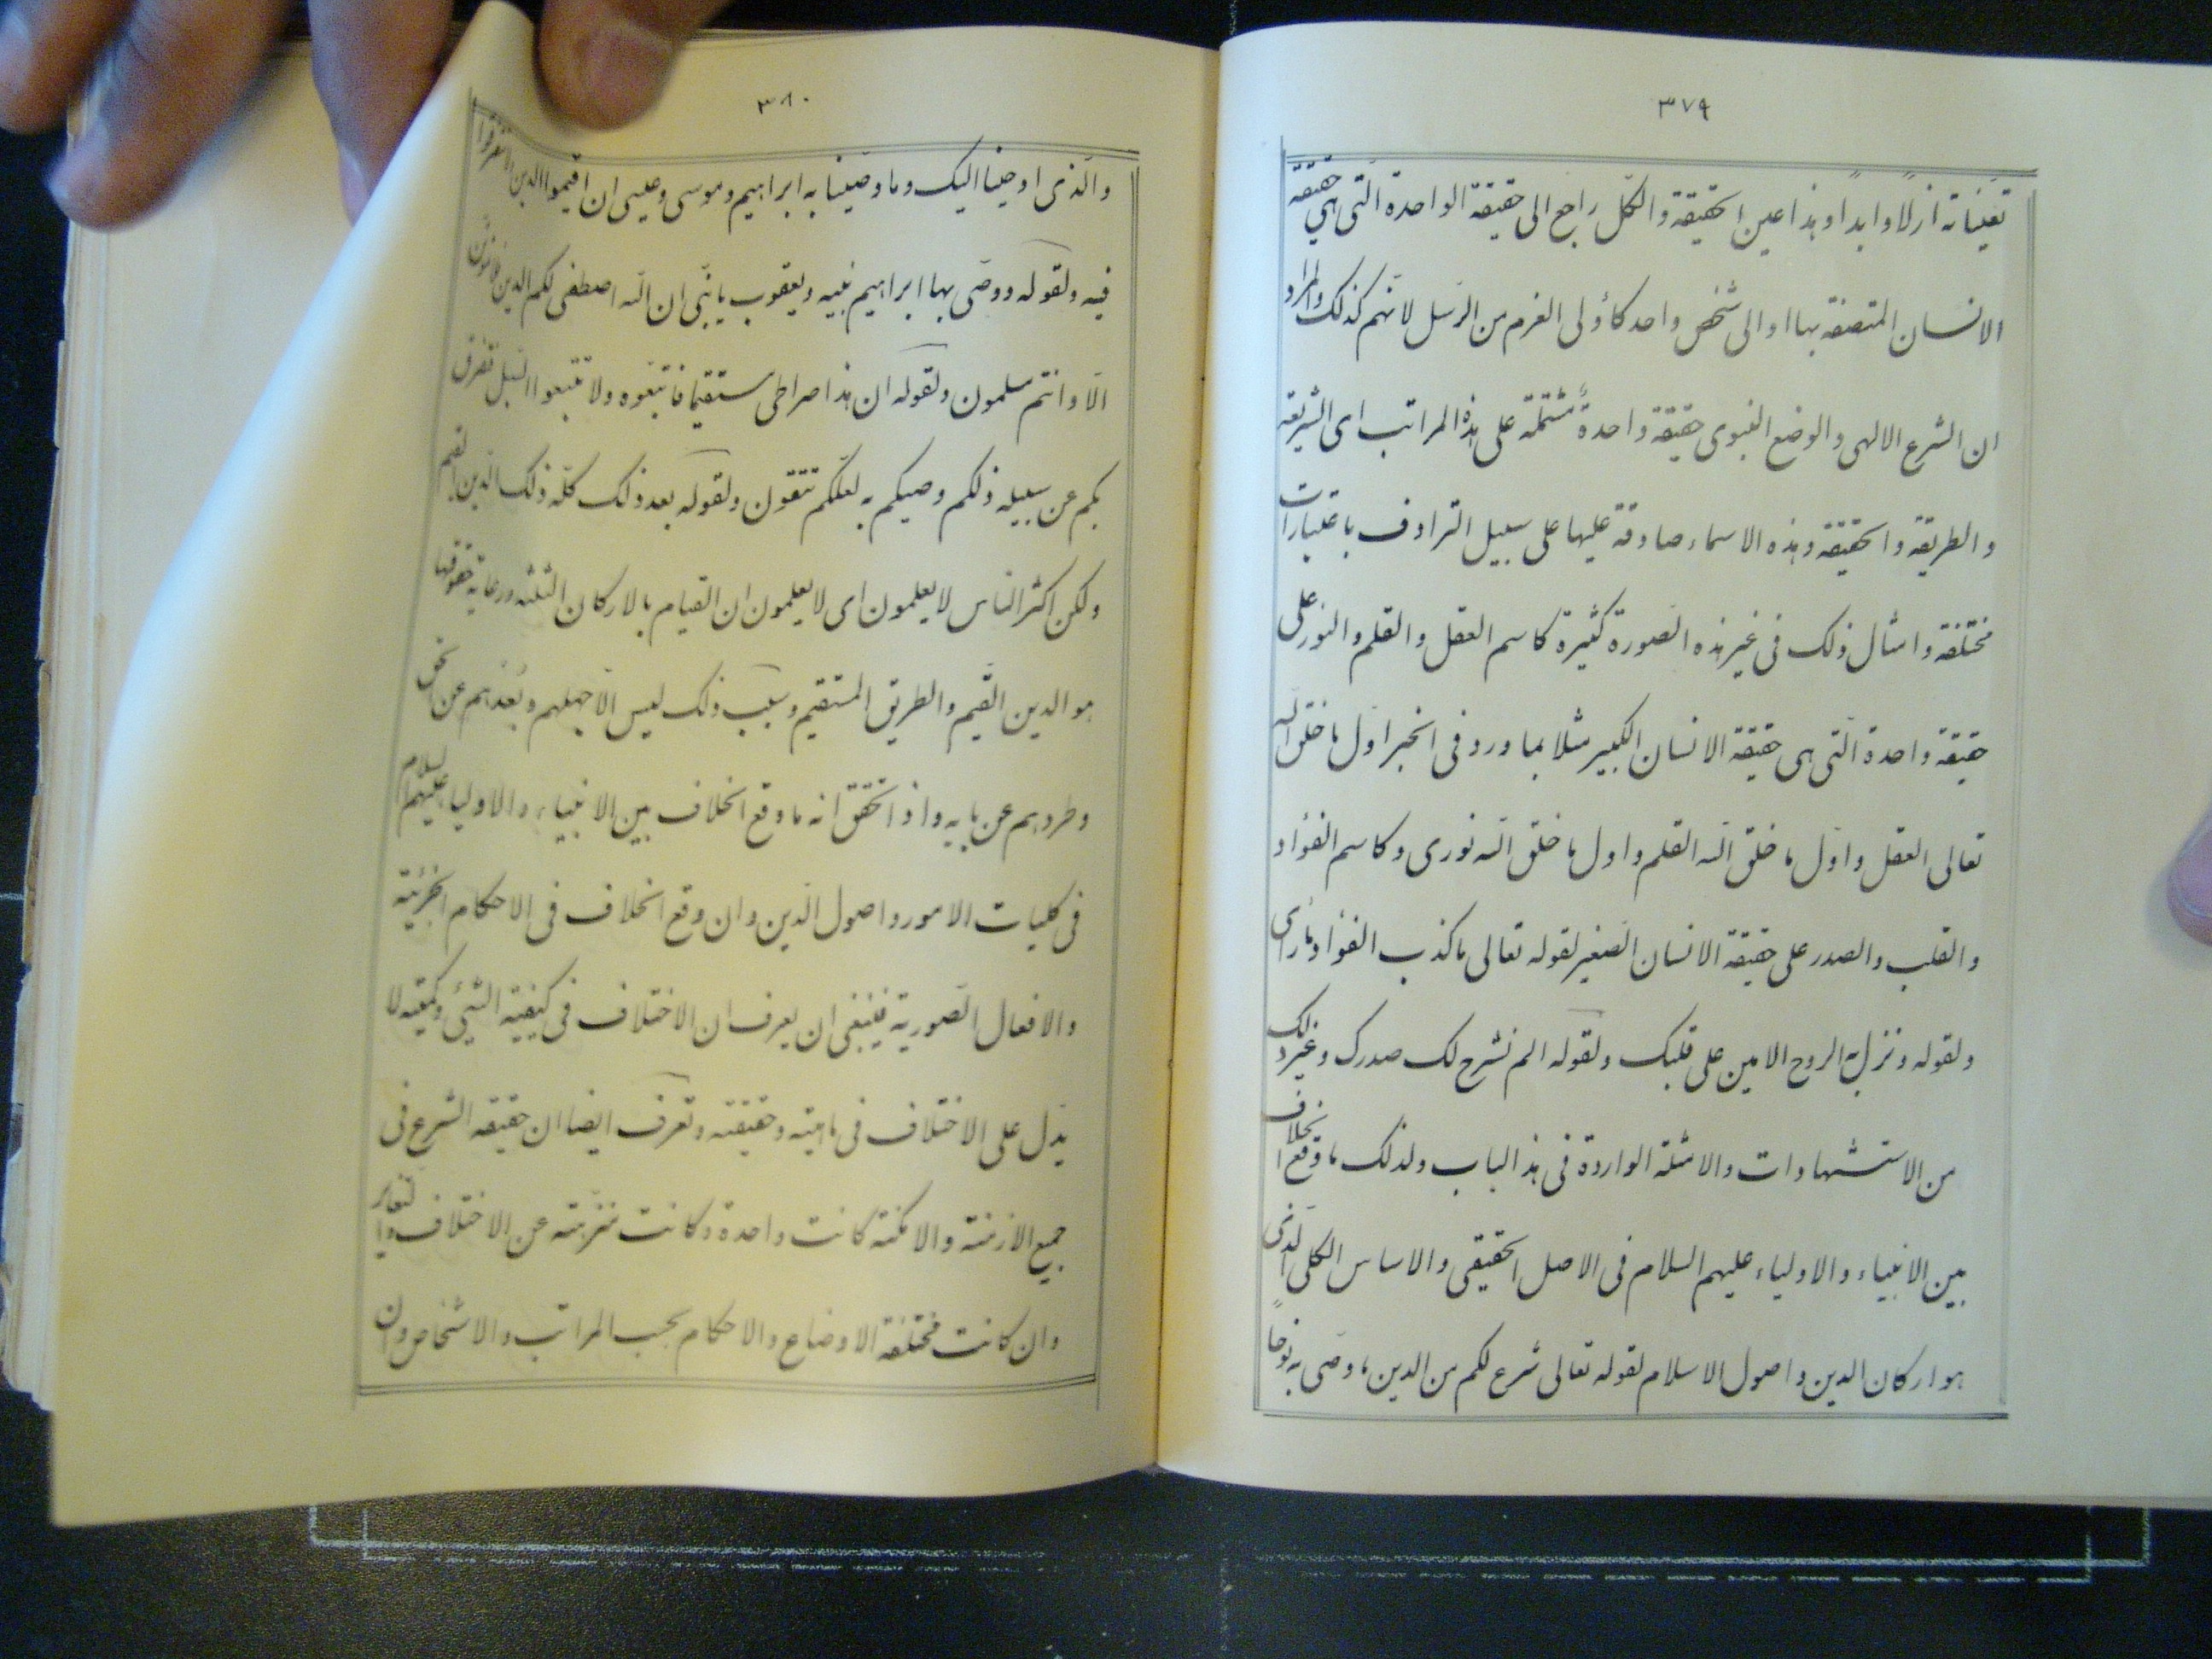 ٣٧٩
تعیناته ازلًا وابدًا وهذا عین الحقیقة والکلّ راجع الی حقیقة الواحدة الّتی هی حقیقة
الانسان المتصفة بها او الی شخص واحد کأولی العزم من الرسل لانّهم کذلک والمراد
ان الشرع الالهی والوضع النبوی حقیقة واحدةٌ مشتملة علی هذه المراتب ای الشریعة
والطریقة والحقیقة وهذه الاسماء صادقة علیها علی سبیل الترادف باعتبارات
مختلفة وامثال ذلک فی غیر هذه الصّورة کثیرة کاسم العقل والقلم والنور علی
حقیقة واحدة الّتی هی حقیقة الانسان الکبیر مثلا بما ورد فی الخبر اوّل ما خلق اللّه
تعالی العقل واوّل ما خلق اللّه القلم واول ما خلق اللّه نوری وکاسم الفؤاد
والقلب والصدر علی حقیقة الانسان الصّغیر لقوله تعالی ما کذب الفؤاد ما رأی
ولقوله ونزل به الروح الامین علی قلبک ولقوله الم نشرح لک صدرک وغیر ذلک
من الاستشهادات والامثلة الواردة فی هذ الباب ولذلک ما وقع الخلاف
بین الانبیاء والاولیاء علیهم السلام فی الاصل الحقیقی والاساس الکلی الّذی
هو ارکان الدین واصول الاسلام لقوله تعالی شرع لکم من الدین ما وصّی به نوحًا
٣٨٠
والّذی اوحینا الیک وما وصّینا به ابراهیم وموسی وعیسی ان اقیموا الدین ولا تتفرقوا
فیه ولقوله ووصّی بها ابراهیم بنیه ویعقوب یا بنّی ان اللّه اصطفی لکم الدین فلا تموتنّ
الّا وانتم مسلمون ولقوله ان هذا صراطی مستقیما فاتّبعوه ولا تتبعوا السّبل فتفرق
بکم عن سبیله ذلکم وصیکم به لعلّکم تتقون ولقوله بعد ذلک کلّه ذلک الدّین القیم
ولکن اکثر النّاس لا یعلمون ای لا یعلمون ان القیام بالارکان الثلثة ورعایة حقوقها
هو الدین القیّم والطریق المستقیم وسبب ذلک لیس الّا جهلهم وبُعدهم عن الحق
وطردهم عن بابه واذا تحقق انه ما وقع الخلاف بین الانبیاء والاولیاء علیهم السلام
فی کلیات الامور واصول الدّین وان وقع الخلاف فی الاحکام الجزئیّة
والافعال الصّوریة فینبغی ان یعرف ان الاختلاف فی کیفیّة الشّیئ وکمیّته لا
یدّل علی الاختلاف فی ماهیّته وحقیقته وتعرف ایضا ان حقیقة الشرع فی
جمیع الازمنة والامکنة کانت واحدة وکانت منزّهته عن الاختلاف والتغایر
وان کانت مختلفة الاوضاع والاحکام بحسب المراتب والاشخاص وان